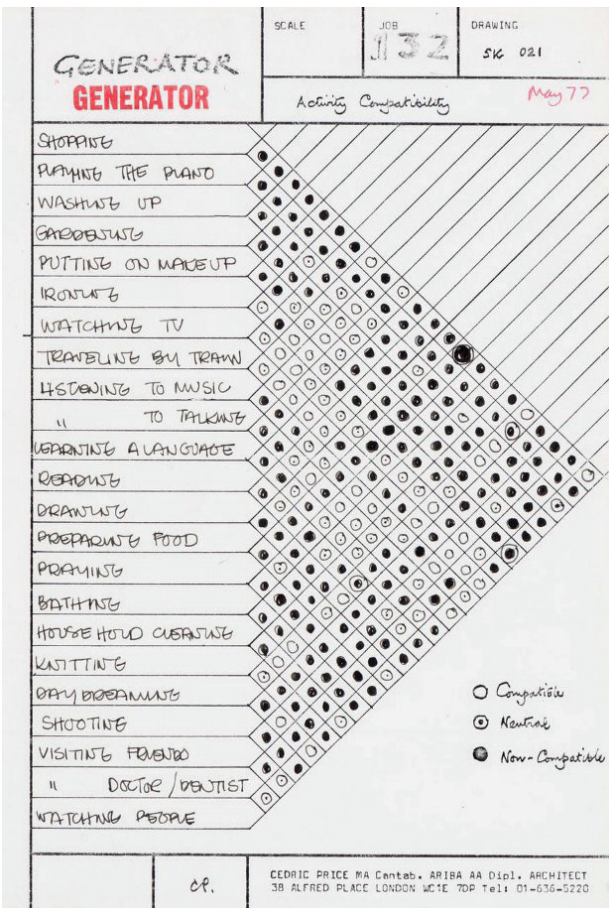 SCALE
JOB
132
DRAWING
SK 021
GENERATOR
GENERATOR
Activity Compatibility
May 77
SHOPPING
PLAYING THE PIANO
WASHING UP
GARDENING
PUTTING ON MAKEUP
IRONING
WATCHING TV
TRAVELING BY TRAIN
LISTENING TO MUSIC
" TO TALKING
LEARNING A LANGUAGE
READING
DRAWING
PREPARING FOOD
PRAYING
BATHING
HOUSE HOLD CLEANING
KNITTING
DAY DREAMING
SHOOTING
VISITING FRIENDS
" DOCTOR / DENTIST
WATCHING PEOPLE
Compatible
Neutral
Non-Compatible
CP.
CEDRIC PRICE MA Cantab. ARIBA AA Dipl. ARCHITECT
38 ALFRED PLACE LONDON WC1E 7DP Tel: 01-636-5220